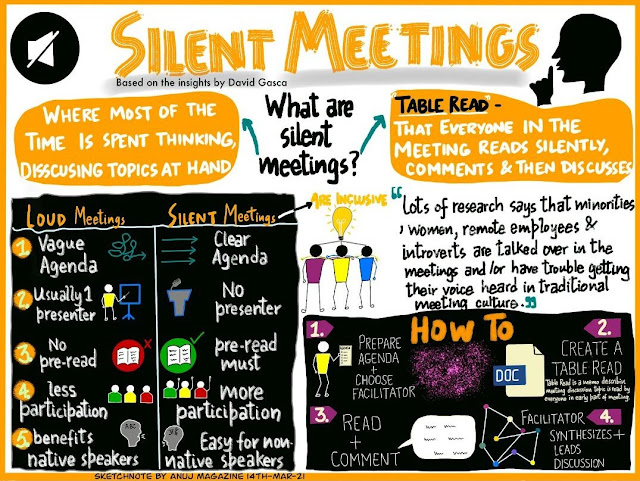 SILENT MEETINGS
Based on the insights by David Gasca
WHERE MOST OF THE
TIME IS SPENT THINKING,
DISSCUSING TOPICS AT HAND
What are
silent
meetings?
TABLE READ -
THAT EVERYONE IN THE
MEETING READS SILENTLY,
COMMENTS & THEN DISCUSSES
LOUD Meetings
SILENT Meetings
1. Vague
Agenda
Clear
Agenda
2. Usually 1
presenter
No
presenter
3. No
pre-read
pre-read
must
4. less
participation
more
participation
5. benefits
native speakers
ABC
Easy for non-
native speakers
ARE INCLUSIVE
"Lots of research says that minorities
, women, remote employees &
introverts are talked over in the
meetings and/or have trouble getting
their voice heard in traditional
meeting culture."
HOW TO
1.
PREPARE
AGENDA
+
CHOOSE
FACILITATOR
2.
DOC
CREATE A
TABLE READ
Table Read is a memo describing
meeting discussion topic & read by
everyone in early part of meeting.
3.
READ
+
COMMENT
4.
FACILITATOR
SYNTHESIZES +
LEADS
DISCUSSION
SKETCHNOTE BY ANUJ MAGAZINE 14TH-MAR-21